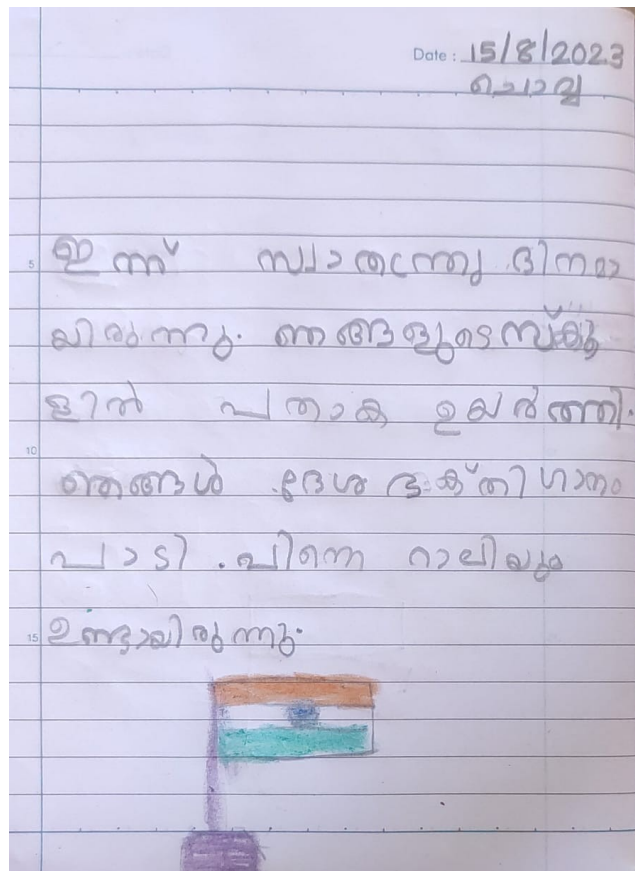 Date : 15/8/2023
ചൊവ്വ
5 ഇന്ന് സ്വാതന്ത്ര്യ ദിനമാ
യിരുന്നു. ഞങ്ങളുടെ സ്കൂ
ളിൽ പതാക ഉയർത്തി.
10
ഞങ്ങൾ ദേശഭക്തിഗാനം
പാടി. പിന്നെ റാലിയും
15 ഉണ്ടായിരുന്നു.